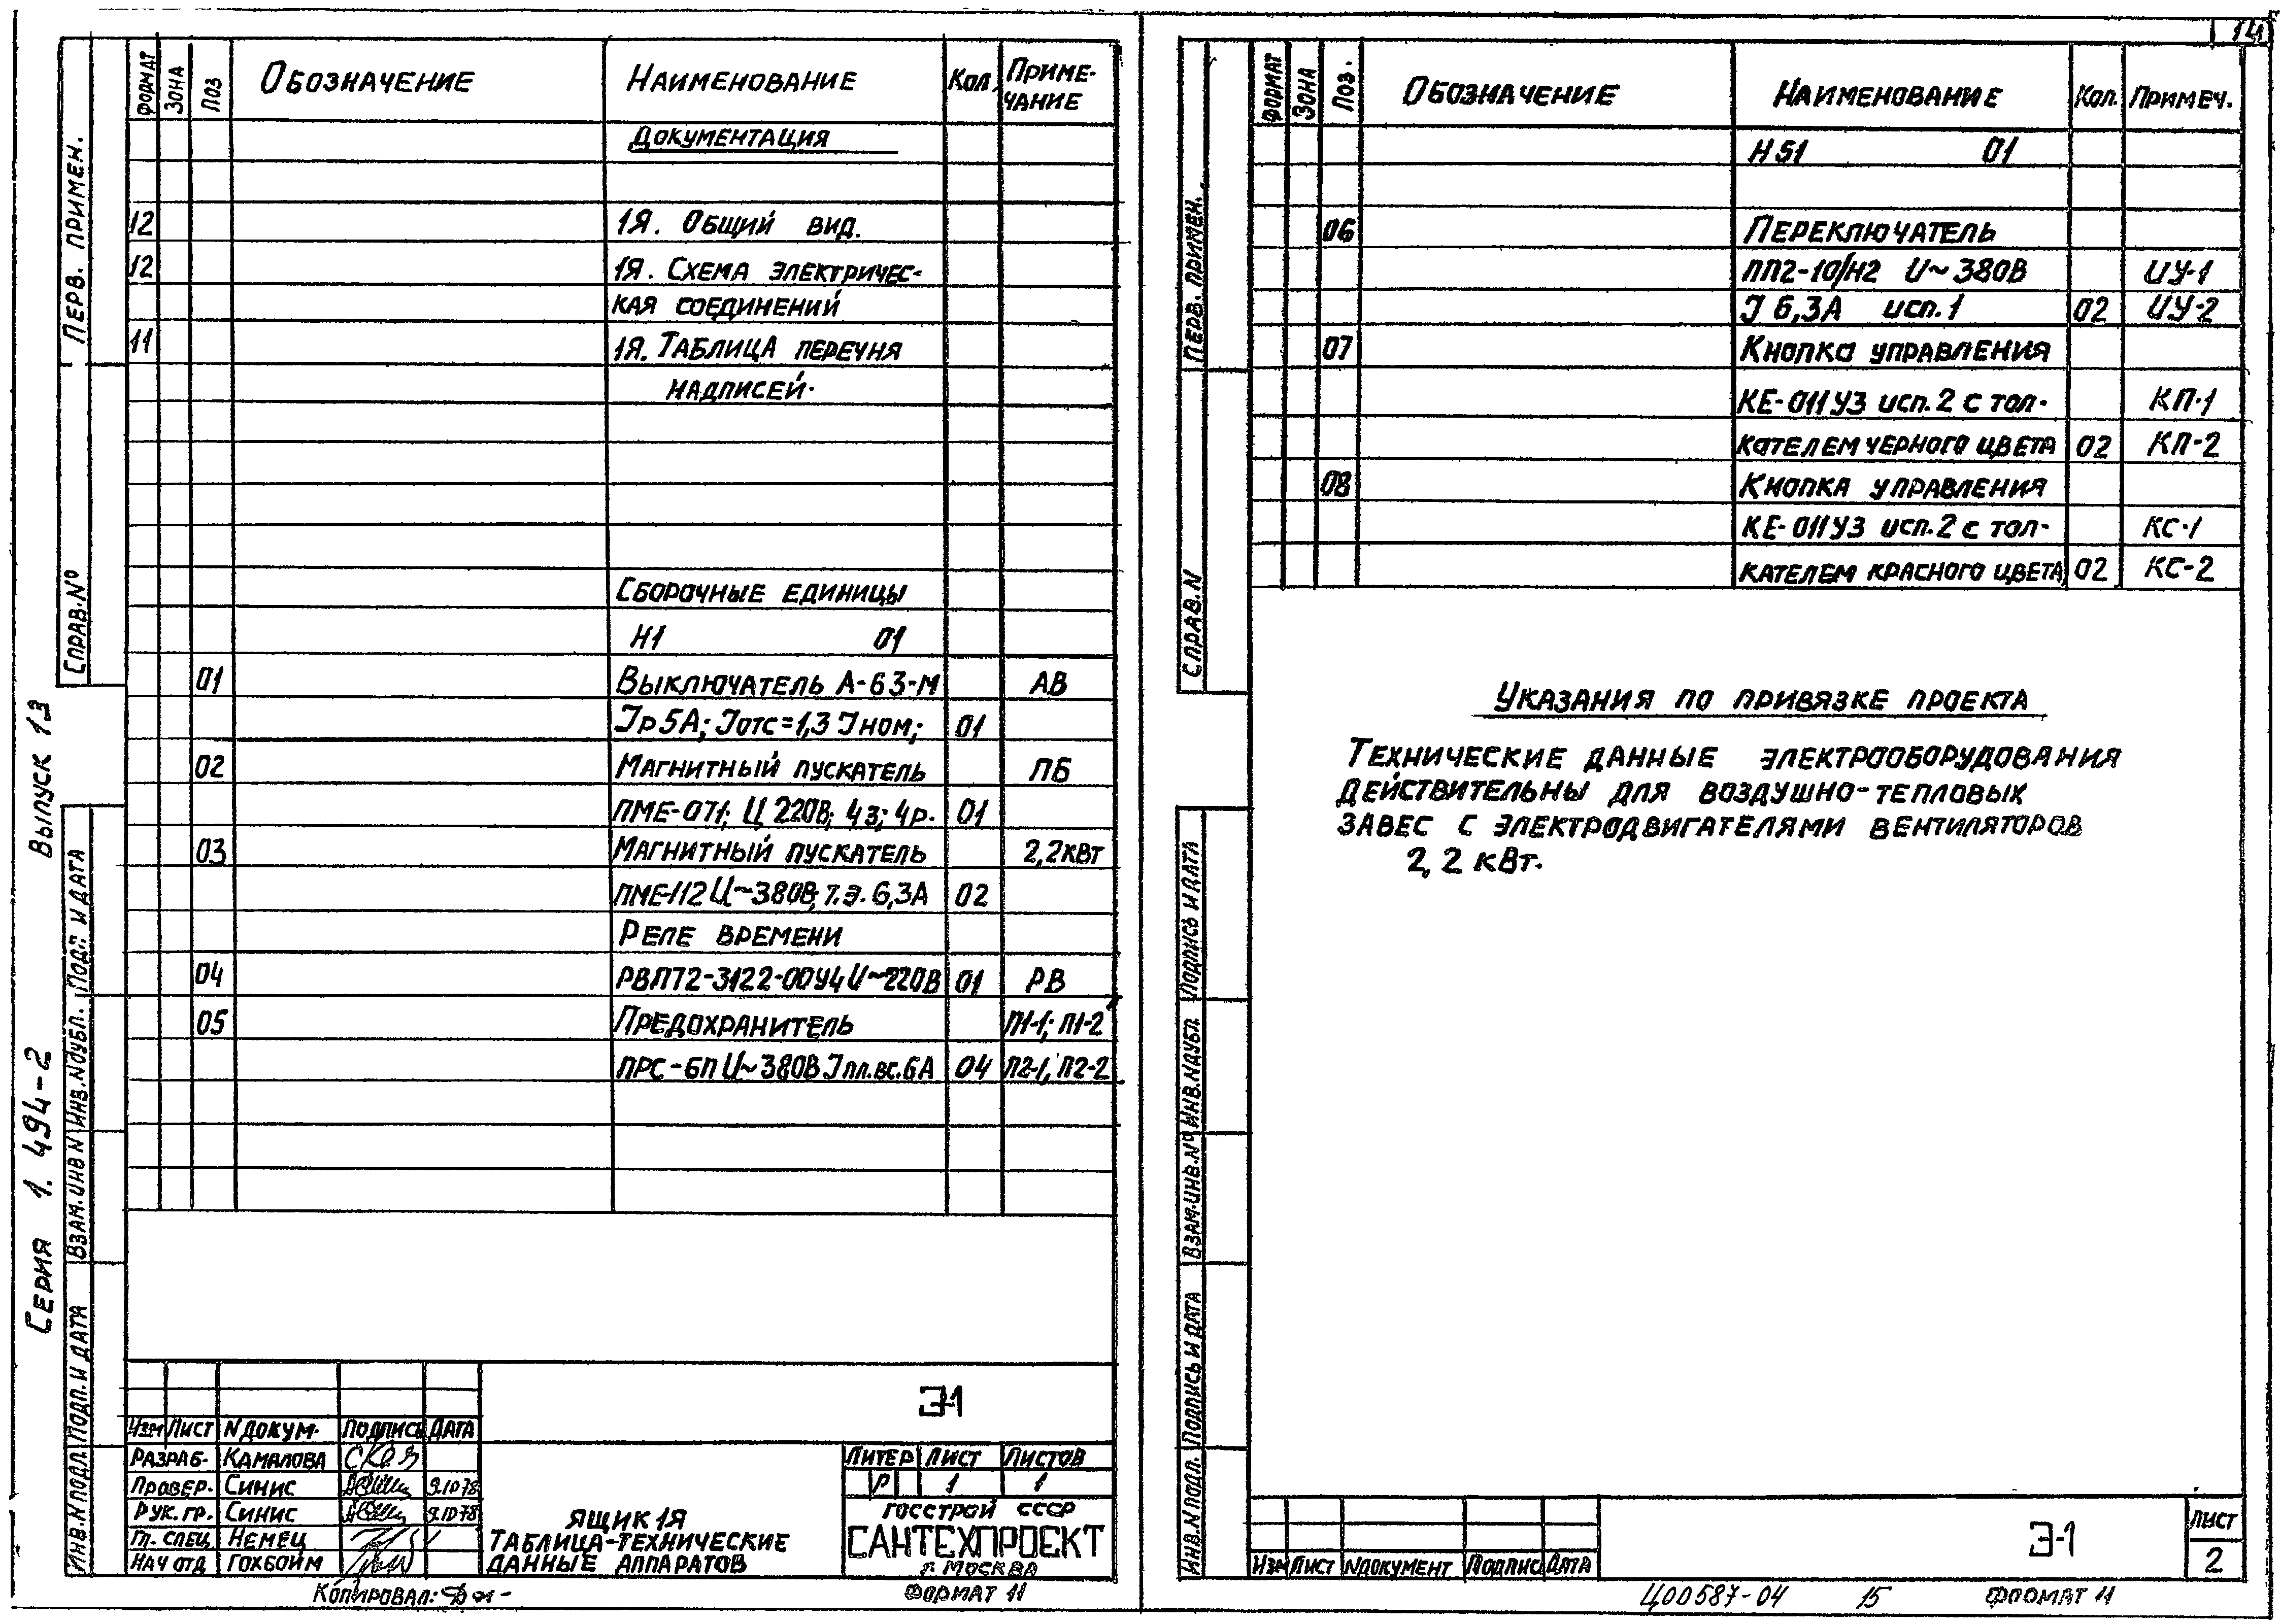 Серия 1. 494-2 Выпуск 13
Перв. примен.
Справ. №
Подп. и дата
Инв. N дубл.
Взам. инв N
Подп. и дата
Инв. N подл.
Формат Зона Поз Обозначение Наименование Кол. Приме-
чание
Документация
12 1Я. Общий вид.
12 1Я. Схема электричес-
кая соединений
11 1Я. Таблица перечня
надписей.
Сборочные единицы
Н1 01
01 Выключатель А-63-М АВ
Iр 5А; Iотс=1,3 Iном; 01
02 Магнитный пускатель ПБ
ПМЕ-071; U 220В; 4з; 4р. 01
03 Магнитный пускатель 2,2кВт
ПМЕ-112 U~380В; т.э. 6,3А 02
Реле времени
04 РВП72-3122-00У4 U~220В 01 РВ
05 Предохранитель П1-1; П1-2
ПРС-6П U~380В Iпл.вс.6А 04 П2-1, П2-2
Э-1
Изм Лист N докум. Подпись Дата
Разраб. Камалова
Провер. Синис 9.10.78
Рук. гр. Синис 9.10.78
Гл. спец Немец
Нач отд Гохбойм
Ящик 1Я
Таблица-технические
данные аппаратов
Литер Лист Листов
Р 1 1
Госстрой СССР
САНТЕХПРОЕКТ
г. Москва
Копировал:
Формат 11
14
Перв. примен.
Справ. N
Подпись и дата
Инв. N дубл.
Взам. инв. №
Подпись и дата
Инв. N подл.
Формат Зона Поз. Обозначение Наименование Кол. Примеч.
Н51 01
06 Переключатель
ПП2-10/Н2 U~380В ИУ-1
I 6,3А исп. 1 02 ИУ-2
07 Кнопка управления
КЕ-011У3 исп. 2 с тол- КП-1
кателем черного цвета 02 КП-2
08 Кнопка управления
КЕ-011У3 исп. 2 с тол- КС-1
кателем красного цвета 02 КС-2
Указания по привязке проекта
Технические данные электрооборудования
действительны для воздушно-тепловых
завес с электродвигателями вентиляторов
2,2 кВт.
Изм Лист N документ Подпись Дата
Э-1
Лист
2
Ц00587-04 15 Формат 11